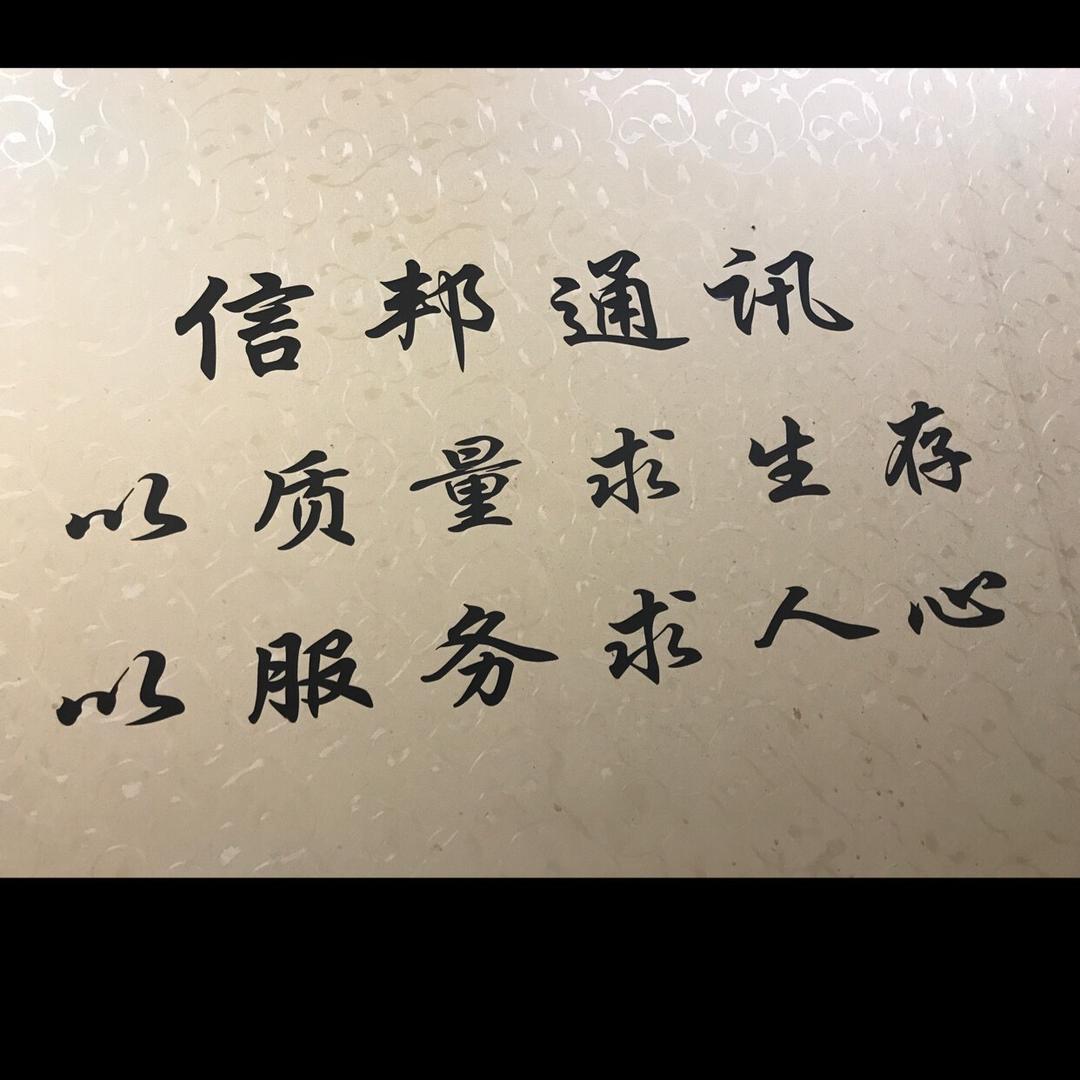 信邦通讯
以质量求生存
以服务求人心